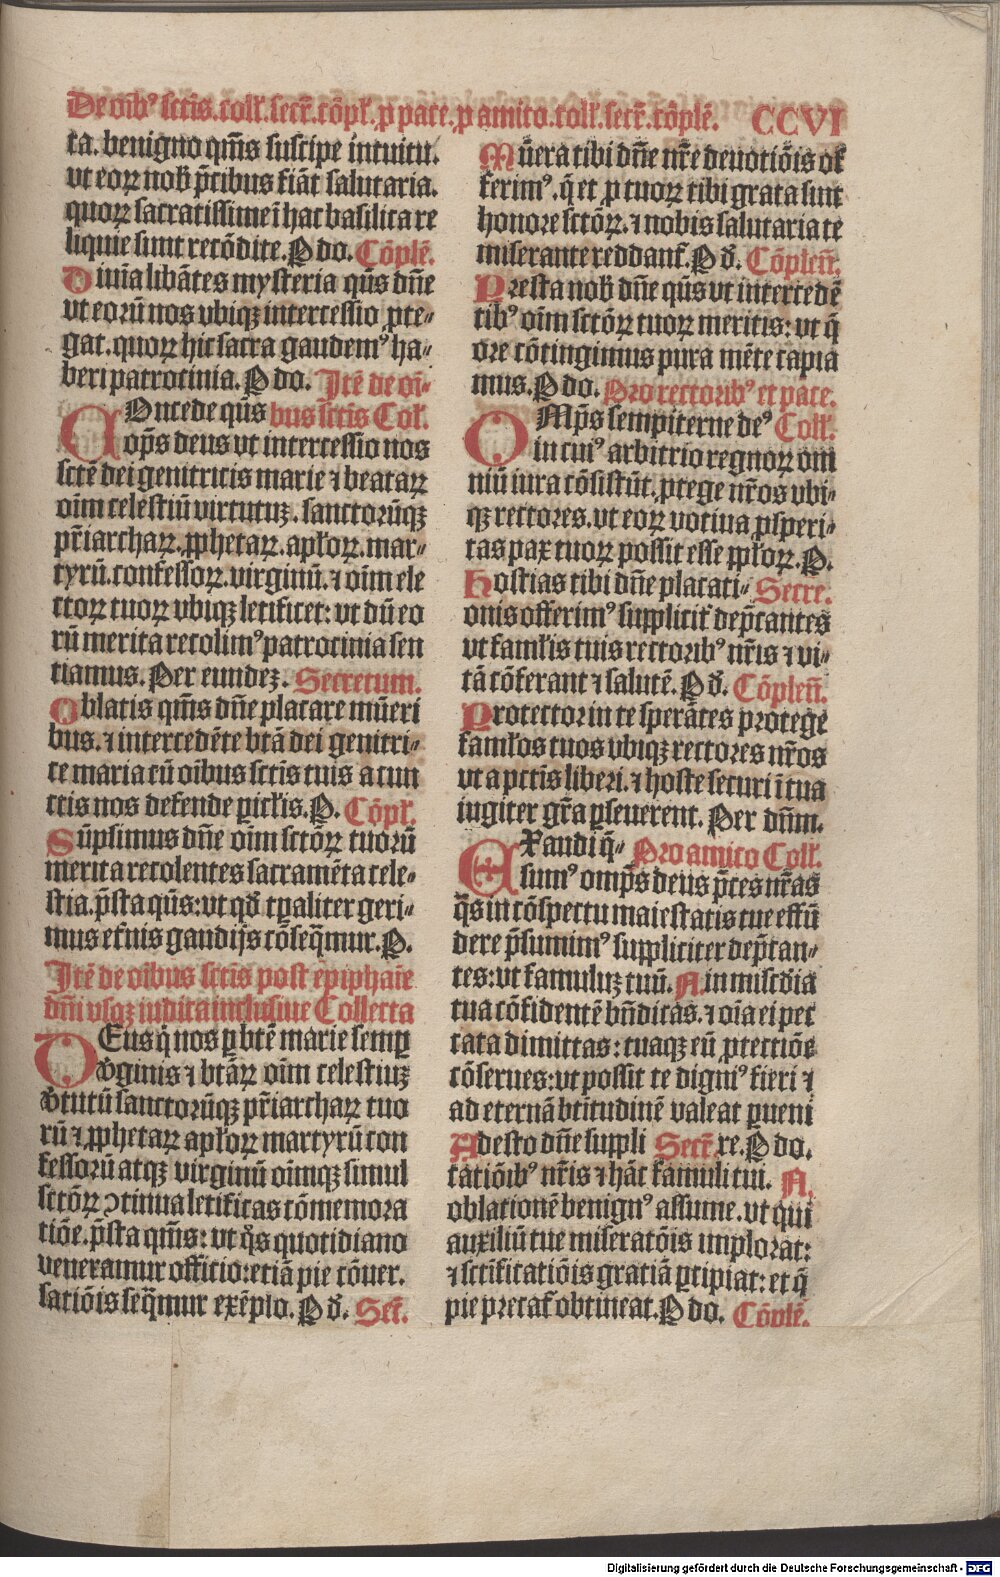 De oīb⁹ sctīs. coll'. secr̄. cōpl'. ꝓ pace. ꝓ amico. coll'. secr̄. cōplē. CCVI
ta. benigno qm̄s suscipe intuitu.
vt eoꝝ nob̄ p̄cibus fiāt salutaria.
quoꝝ sacratissime ī hac basilica re
liquie sunt recōdite. P do. Cōplē.
Diuīa libātes mysteria qūs dn̄e
vt eorū nos vbiqꝫ intercessio ꝓte⸗
gat. quoꝝ hic sacra gaudem⁹ ha⸗
beri patrocinia. P do. Itē de oī⸗
COncede qūs bus sctīs Col'.
op̄s deus vt intercessio nos
sctē dei genitricis marie ⁊ beataꝝ
oīm celestiū virtutuꝫ. sanctorūqꝫ
pr̄iarchaꝝ. ꝓphetaꝝ. apl'oꝝ. mar⸗
tyrū. confessoꝝ. virginū. ⁊ oīm ele
ctoꝝ tuoꝝ vbiqꝫ letificet: vt dū eo
rū merita recolim⁹ patrocinia sen
tiamus. Per eundeꝫ. Secretum.
Oblatis qm̄s dn̄e placare mūeri
bus. ⁊ intercedēte btā dei genitri⸗
ce maria cū oībus sctīs tuis a cun
ctis nos defende ꝑicl'is. P. Cōpl'.
Sūpsimus dn̄e oīm sctōꝝ tuorū
merita recolentes sacramēta cele⸗
stia. p̄sta qūs: vt qd̄ tꝑaliter geri⸗
mus eternis gaudijs cōseq̄mur. P.
Itē de oībus sctīs post epiphaīe
dn̄i vsqꝫ iudica inclusiue Collecta
DEus q̇ nos ꝑ btē marie semꝑ
v̓ginis ⁊ btāꝝ oīm celestiuꝫ
v̓tutū sanctorūqꝫ pr̄iarchaꝝ tuo
rū ⁊ ꝓphetaꝝ apl'oꝝ martyrū con
fessorū atqꝫ virginū oīmqꝫ simul
sctōꝝ ↄtinua letificas cōmemora
tiōe. p̄sta qm̄s: vt q̊s quotidiano
veneramur officio: etiā pie cōuer.
satiōis seq̄mur exēplo. P d̄. Secr̄.
Mūera tibi dn̄e nr̄e deuotiōis of
ferim⁹. q̄ et ꝓ tuoꝝ tibi grata sint
honore sctōꝝ. ⁊ nobis salutaria te
miserante reddant'. P d̄. Cōplen̄.
Presta nob̄ dn̄e qūs vt intercedē
tib⁹ oīm sctōꝝ tuoꝝ meritis: vt q̄
ore cōtingimus pura mēte capia
mus. P do. Pro rectorib⁹ et pace.
OMp̄s sempiterne de⁹ Coll'.
in cui⁹ arbitrio regnoꝝ om
niū iura cōsistūt. ꝓtege nr̄os vbi⸗
qꝫ rectores. vt eoꝝ votiua ꝓsperi⸗
tas pax tuoꝝ possit esse ppl'oꝝ. P.
Hostias tibi dn̄e placati⸗ Secre.
onis offerim⁹ supplicit' dep̄cantes
vt faml'is tuis rectorib⁹ nr̄is ⁊ vi⸗
tā cōferant ⁊ salutē. P d̄. Cōplen̄.
Protector in te sperātes protege
faml'os tuos vbiqꝫ rectores nr̄os
vt a pctīs liberi. ⁊ hoste securi ī tua
iugiter gr̄a ꝑseuerent. Per dn̄m.
EXaudi q̄⸗ Pro amico Coll'.
sum⁹ omp̄s deus p̄ces nr̄as
q̄s in cōspectu maiestatis tue effū
dere p̄sumim⁹ suppliciter dep̄can⸗
tes: vt famuluꝫ tuū. N. in miscdīa
tua cōfidentē bn̄dicas. ⁊ oīa ei pec
cata dimittas: tuaqꝫ eū ꝓtectiōe
cōserues: vt possit te dign⁹ fieri ⁊
ad eternā btītudinē valeat ꝑueni
Adesto dn̄e suppli Secr̄. re. P do.
catiōib⁹ nr̄is ⁊ hāc famuli tui. N.
oblationē benign⁹ assume. vt qui
auxiliū tue miseratōis implorat:
⁊ sctīficatiōis gratiā ꝑcipiat: et q̄
pie precat' obtineat. P do. Cōplē.
Digitalisierung gefördert durch die Deutsche Forschungsgemeinschaft - DFG